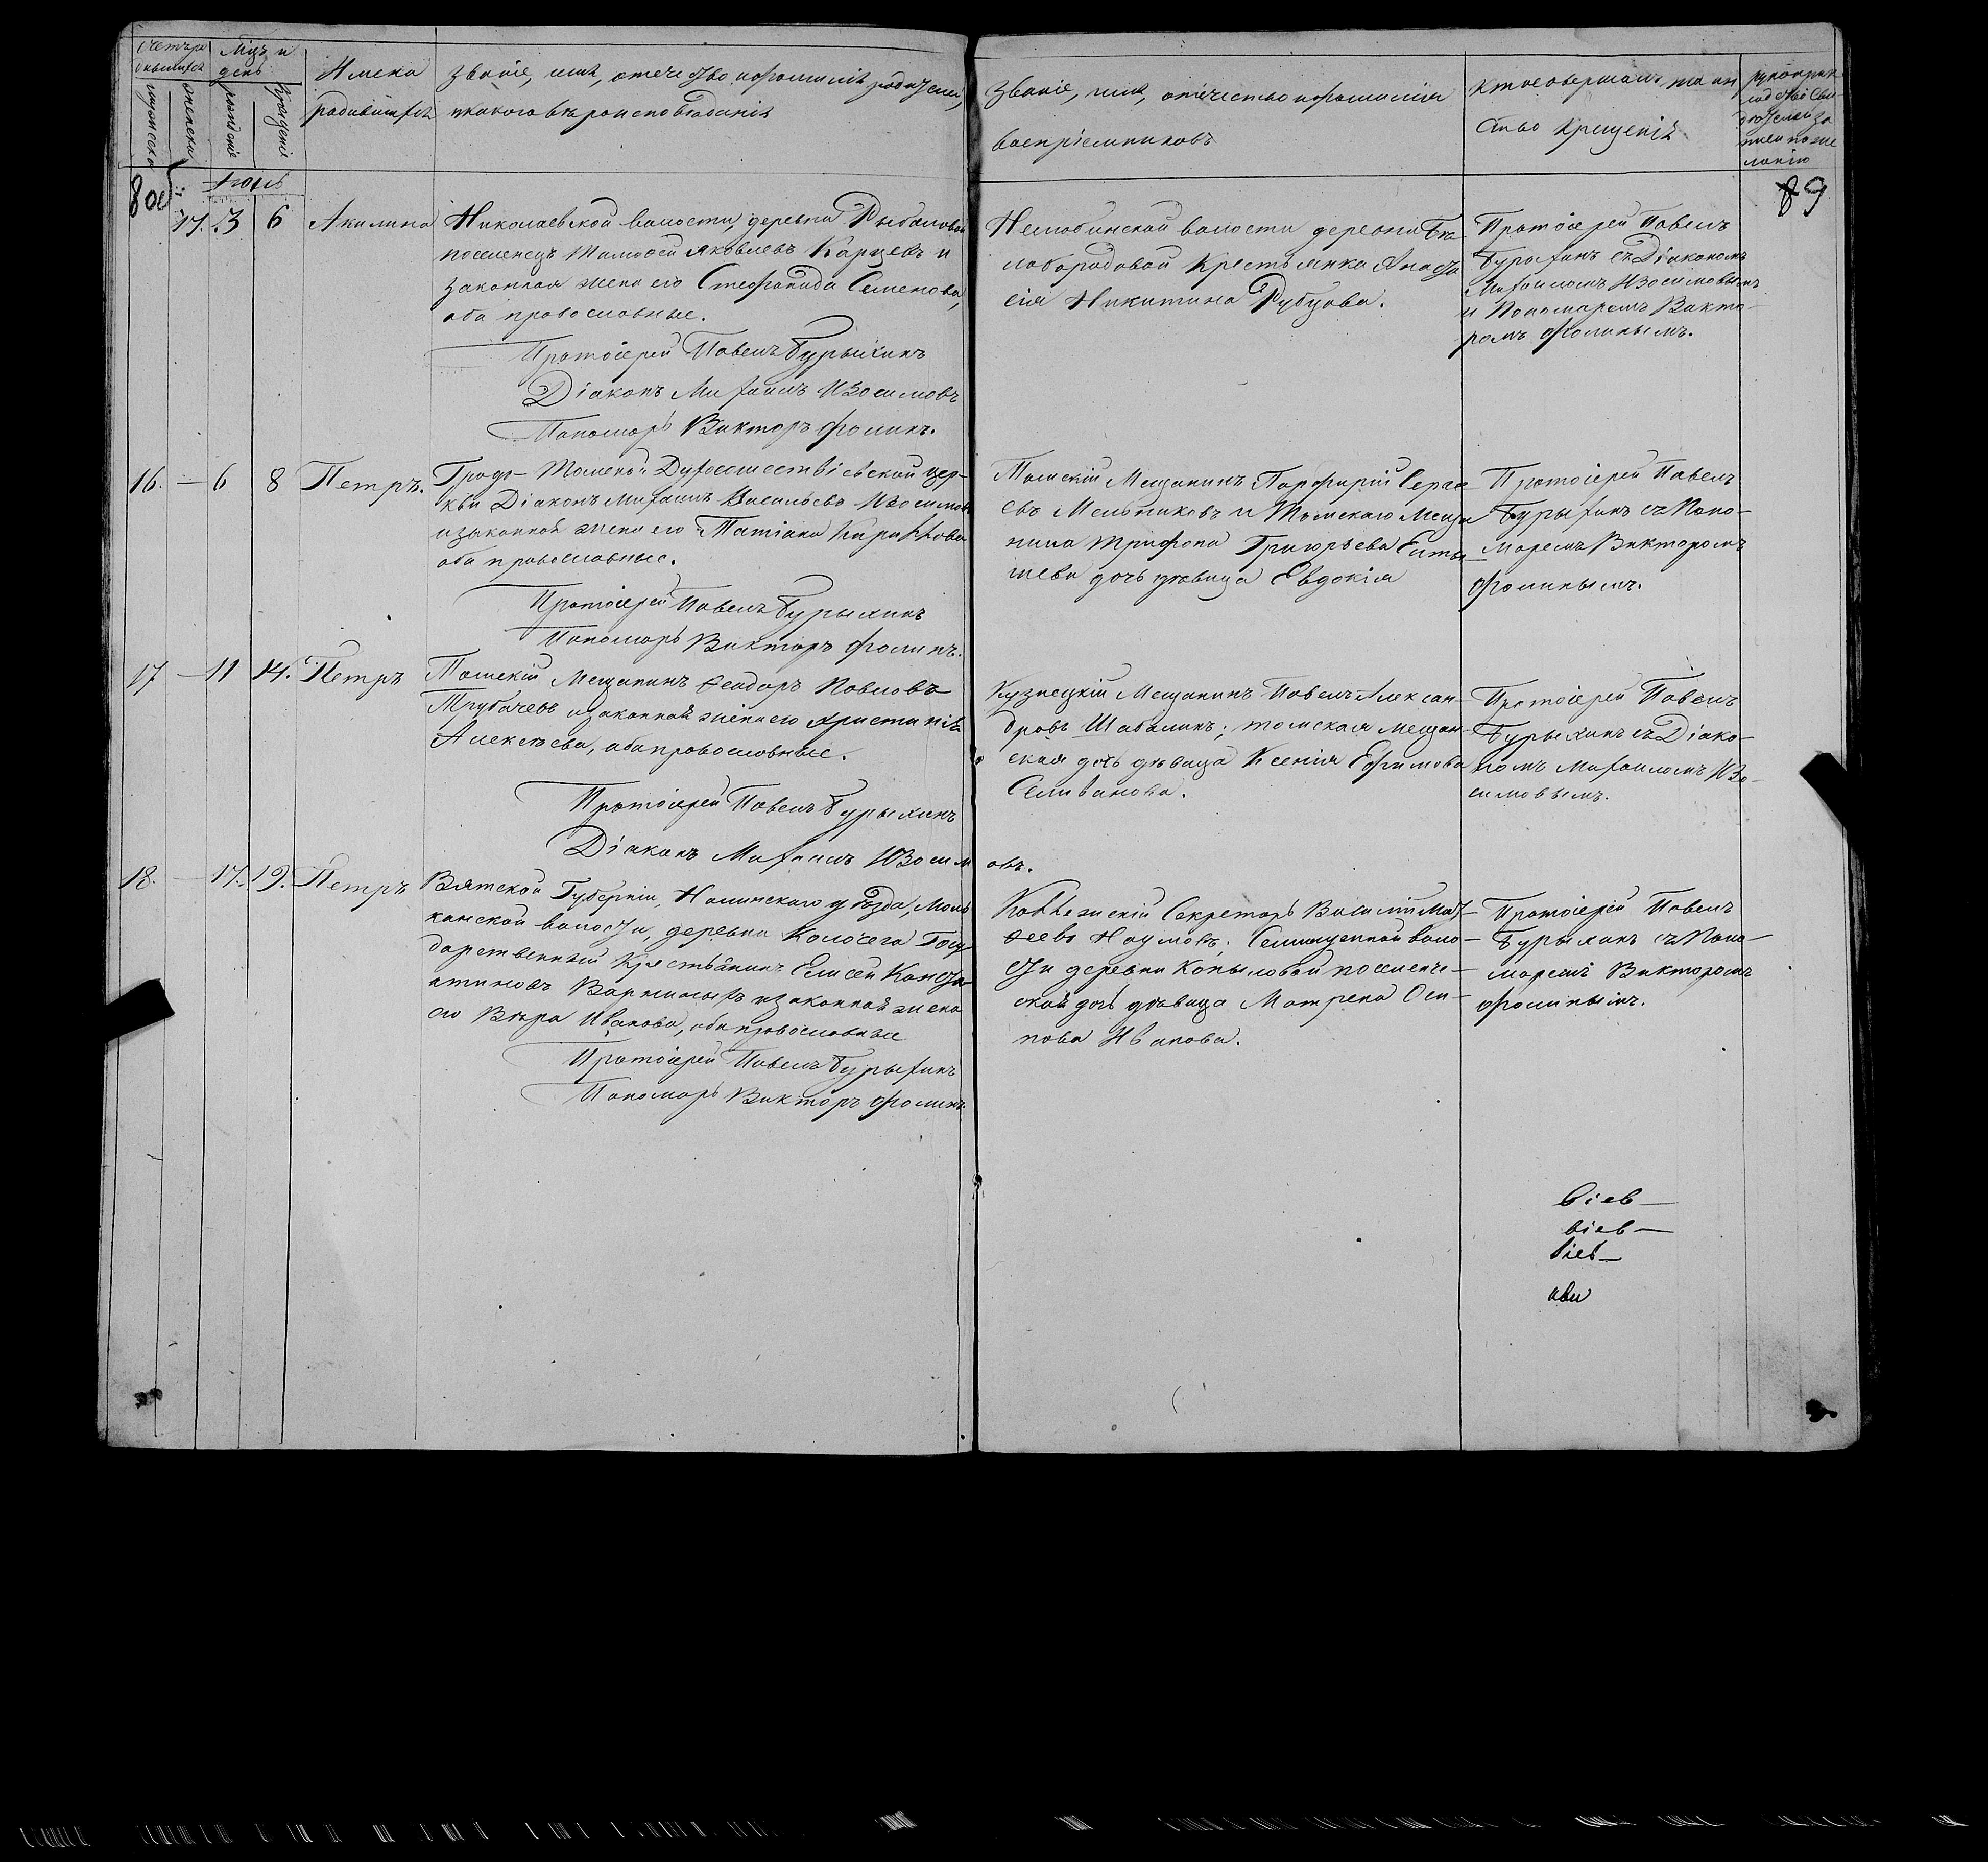 Счетъ ро
дившихся
Мцъ и
день
мужеска
женска
рожденіе
крещеніе
Имена
родившихся
Званіе, имя, отечество и фамилія родителей,
и какого вѣроисповѣданія
Званіе, имя, отечество и фамилія
воспріемниковъ
Кто совершалъ таин
ство крещенія
рукоприк
ладство сви
дѣтелей за
писи по же
ланію
80 об.
89
17. 3 6 Акилина
Николаевской волости, деревни Рыбаловой
поселенецъ Тимофей Яковлевъ Карцевъ и
законная жена его Стефанида Семенова,
оба православные.
Протоіерей Павелъ Бурыхинъ
Діаконъ Михаилъ Изосимовъ
Пономарь Викторъ Фоминъ.
Нелюбинской волости деревни Бѣ
лобородовой Крестьянка Анаста
сія Никитина Рубцова.
Протоіерей Павелъ
Бурыхинъ съ Діакономъ
Михаиломъ Изосимовымъ
и Пономаремъ Викто-
ромъ Фоминымъ.
16. — 6 8 Петръ.
Градо-Томской Духосошествіевской цер-
кви Діаконъ Михаилъ Васильевъ Изосимовъ
и законная жена его Татіана Кириллова
оба православные.
Протоіерей Павелъ Бурыхинъ
Пономарь Викторъ Фоминъ.
Томскій Мещанинъ Порфирій Сергѣ
евъ Мельниковъ и Томскаго Меща
нина Трифона Григорьева
дочь дѣвица Евдокія
Протоіерей Павелъ
Бурыхинъ съ Поно-
маремъ Викторомъ
Фоминымъ.
17 — 11 14. Петръ
Томскій Мещанинъ Ѳеодоръ Павловъ
Трубачевъ и законная жена его Христинія
Алексѣева, оба православные.
Протоіерей Павелъ Бурыхинъ
Діаконъ Михаилъ Изосим овъ.
Кузнецкій Мещанинъ Павелъ Алексан-
дровъ Шабалинъ; томская мещан-
ская дочь дѣвица Ксенія Ефимова
Селиванова.
Протоіерей Павелъ
Бурыхинъ съ Діако-
номъ Михаиломъ Изо-
симовымъ.
18. — 17. 19. Петръ
Вятской Губерніи, Нолинскаго уѣзда,
волости, деревни Госу
дарственный Крестьянинъ Елисей Конста
нтиновъ и законная жена
его Вѣра Иванова, оба православные
Протоіерей Павелъ Бурыхинъ
Пономарь Викторъ Фоминъ.
Коллежскій Секретарь Василій Мат-
ѳеевъ Наумовъ; Семилужной воло-
сти деревни Копыловой поселенче-
ской дочь дѣвица Матрена Оси-
пова Иванова.
Протоіерей Павелъ
Бурыхинъ съ Поно-
маремъ Викторомъ
Фоминымъ.
віев—
віев—
віев—